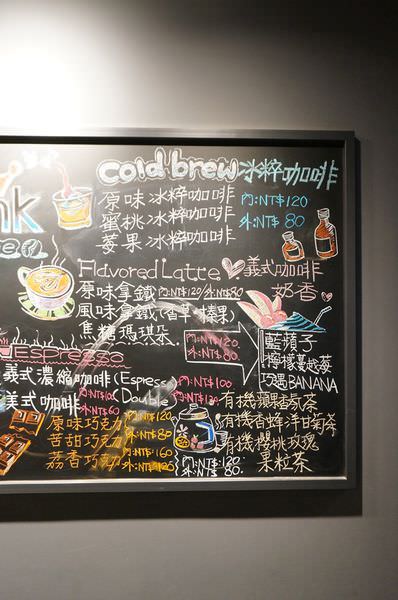 cold brew 冰粹咖啡
原味冰粹咖啡 內:NT$120
蜜桃冰粹咖啡 外:NT$80
莓果冰粹咖啡
nk
Flavored Latte 義式咖啡
原味拿鐵 內:NT$120/外:NT$80 奶香
風味拿鐵(香草.榛果)
焦糖瑪琪朵 內:NT$120
外:NT$80
藍蘋子
檸檬蔓越莓
巧遇BANANA
Espresso
義式濃縮咖啡(Espress 內:NT$100
Double
美式咖啡 外:NT$60
有機蘋果香氛茶
原味巧克力 內:NT$120
外:NT$80
有機香蜂洋甘菊茶
苦甜巧克力
有機櫻桃玫瑰
果粒茶
荔香巧克力 內:NT$160
外:NT$120
內:NT$120
外:NT$80